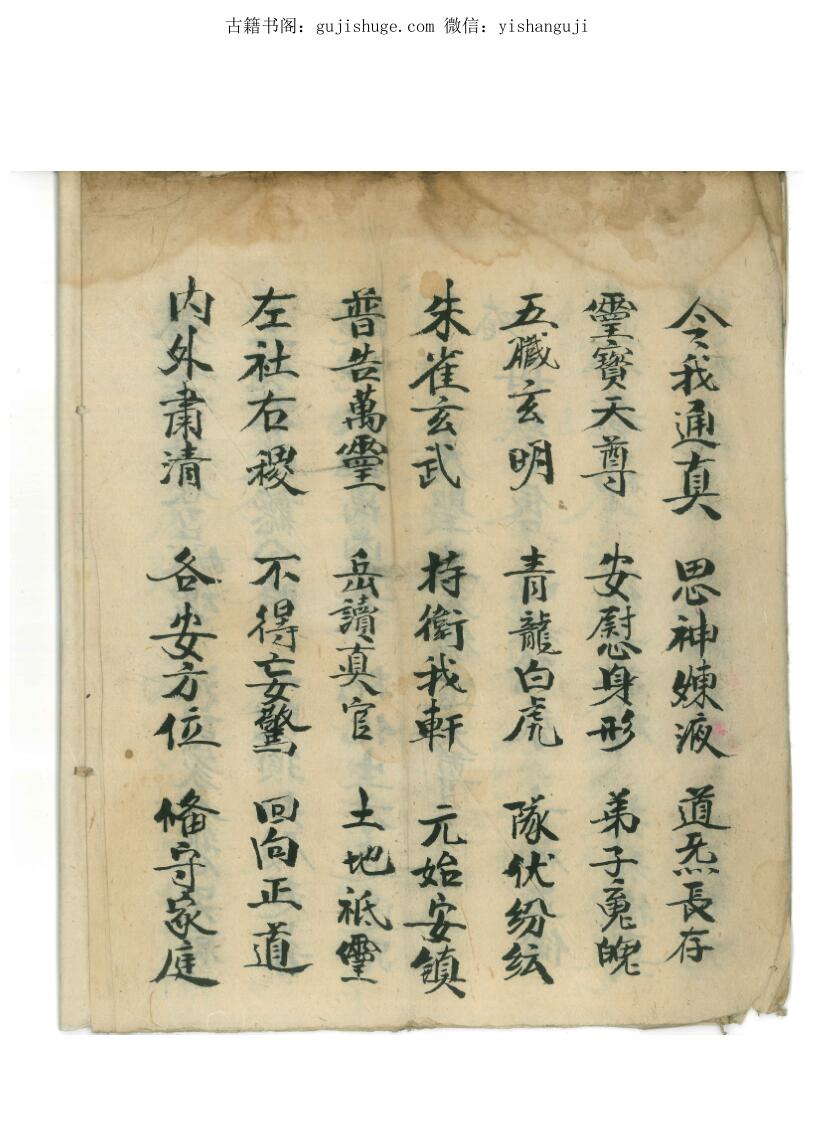 古籍书阁：gujishuge.com 微信：yishanguji
令我通真 思神煉液 道炁長存
靈寶天尊 安慰身形 弟子魂魄
五臓玄明 青龍白虎 隊伏紛紜
朱雀玄武 持衛我軒 元始安鎮
普告萬靈 岳讀真官 土地祇靈
左社右稷 不得妄驚 回向正道
内外肅清 各安方位 偹守家庭